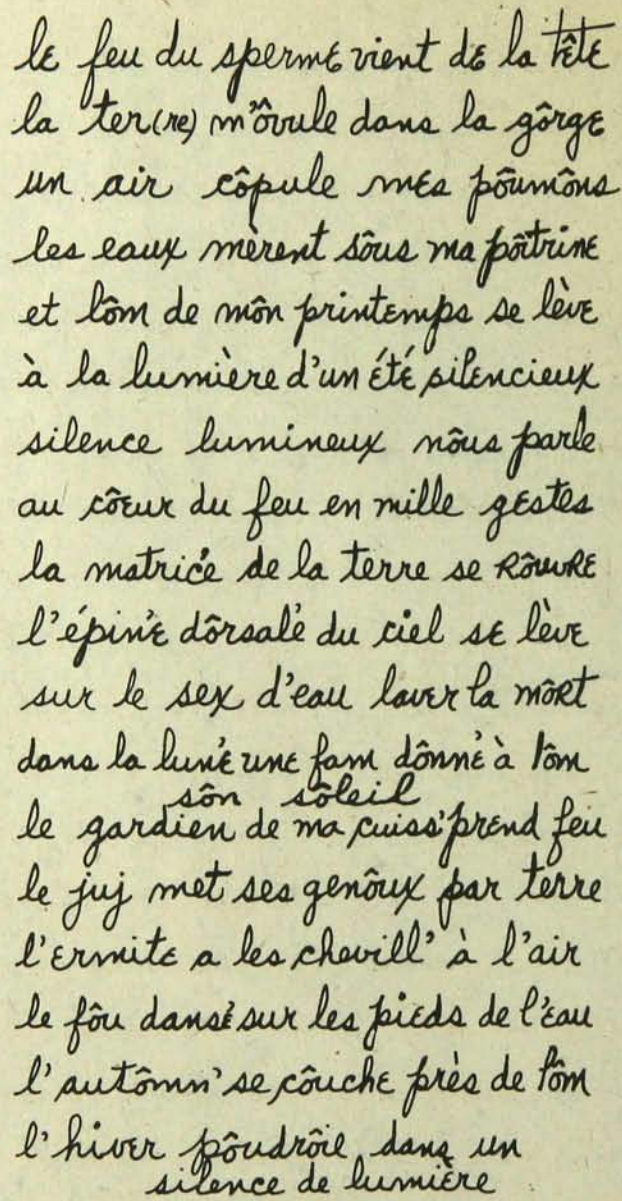 le feu du sperme vient de la tête
la ter(re) m'ôvule dans la gôrge
un air côpule mes pôumôns
les eaux mèrent sôus ma pôitrine
et lôm de môn printemps se lève
à la lumière d'un été silencieux
silence lumineux nôus parle
au côeur du feu en mille gestes
la matric'e de la terre se RôuvRe
l'épin'e dôrsal'e du ciel se lève
sur le sex d'eau laver la môRt
dans la lun'e une fam dônn'e à lôm
sôn sôleil
le gardien de ma cuiss' prend feu
le juj met ses genôux par terre
l'ermite a les chevill' à l'air
le fôu dans'e sur les pieds de l'eau
l'autômn' se côuche près de lôm
l'hiver pôudrôie dans un
silence de lumière